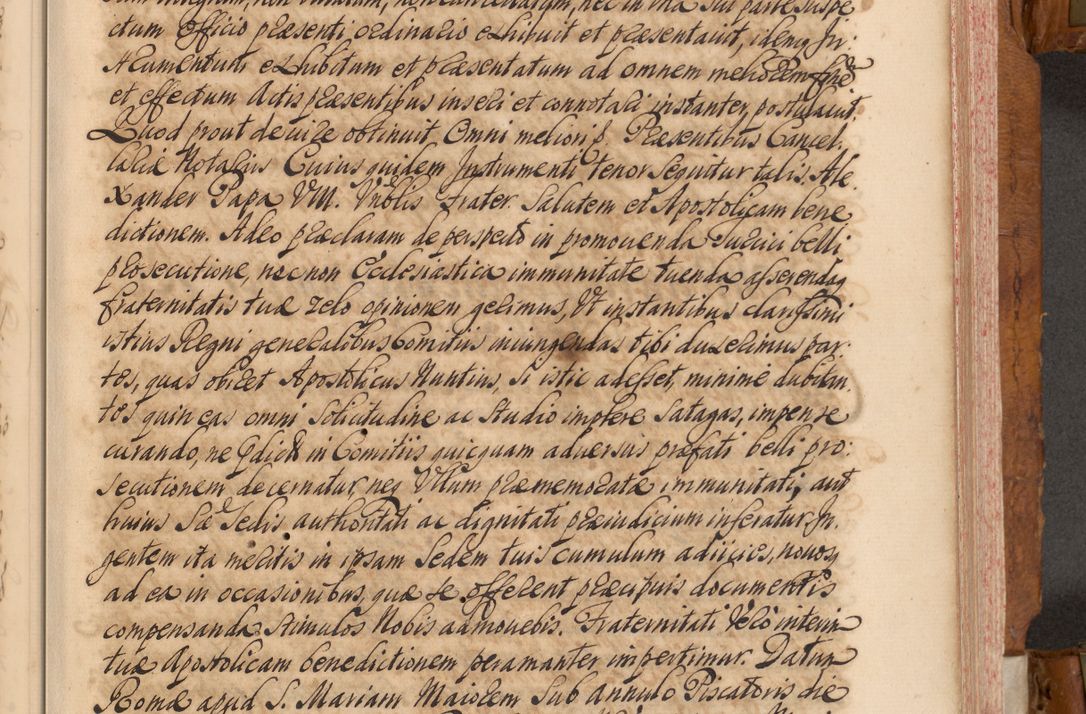 ctum Officio præsenti, ordinario exhibuit et præsentavit, idenq; In:
strumentum exhibitum et præsentatum ad omnem meliorem finem
et effectum Actis præsentibus inseri et connotari instanter, postulavit.
Quod prout de iure obtinuit. Omni meliori p. Præsentibus Cancel.
lariæ Notariis Cuius quidem Instrumenti tenor sequitur talis. Ale
xander Papa VIII. Vnblis Frater Salutem et Apostolicam bene
dictionem. Adeo præclaram de perspecto in promouenda Turcici belli
prosecutione, nec non Ecclesiastica immunitate tuenda asserendaq
fraternitatis tuæ zelo opinionem gerimus, Vt instantibus clarissimi
istius Regni generalibus Comitiis iniungendas tibi duxerimus par.
tes, quas obiret Apostolicus Nuntius, si istic adesset, minimè dubitan
tes quin eas omni solicitudine ac studio implere satagas, impense
curando, ne pdictis in Comitiis quicquam aduersus præfati belli pro:
secutionem decernatur neq Vllum præmemoratæ immunitati, aut
huius Sæ Sedis authoritati ac dignitati præiudicium inferatur. In.
gentem ita meritis in ipsam Sedem tuis cumulum adiicies, nouosq
ad ea in occasionibus, quæ se offerent præcipuis documentis
compensanda stimulos Nobis admouebis. Fraternitati Vero interim
tuæ Apostolicam benedictionem peramanter impertimur. Datum
Romæ apud S. Mariam Maiorem Sub Annulo Piscatoris die